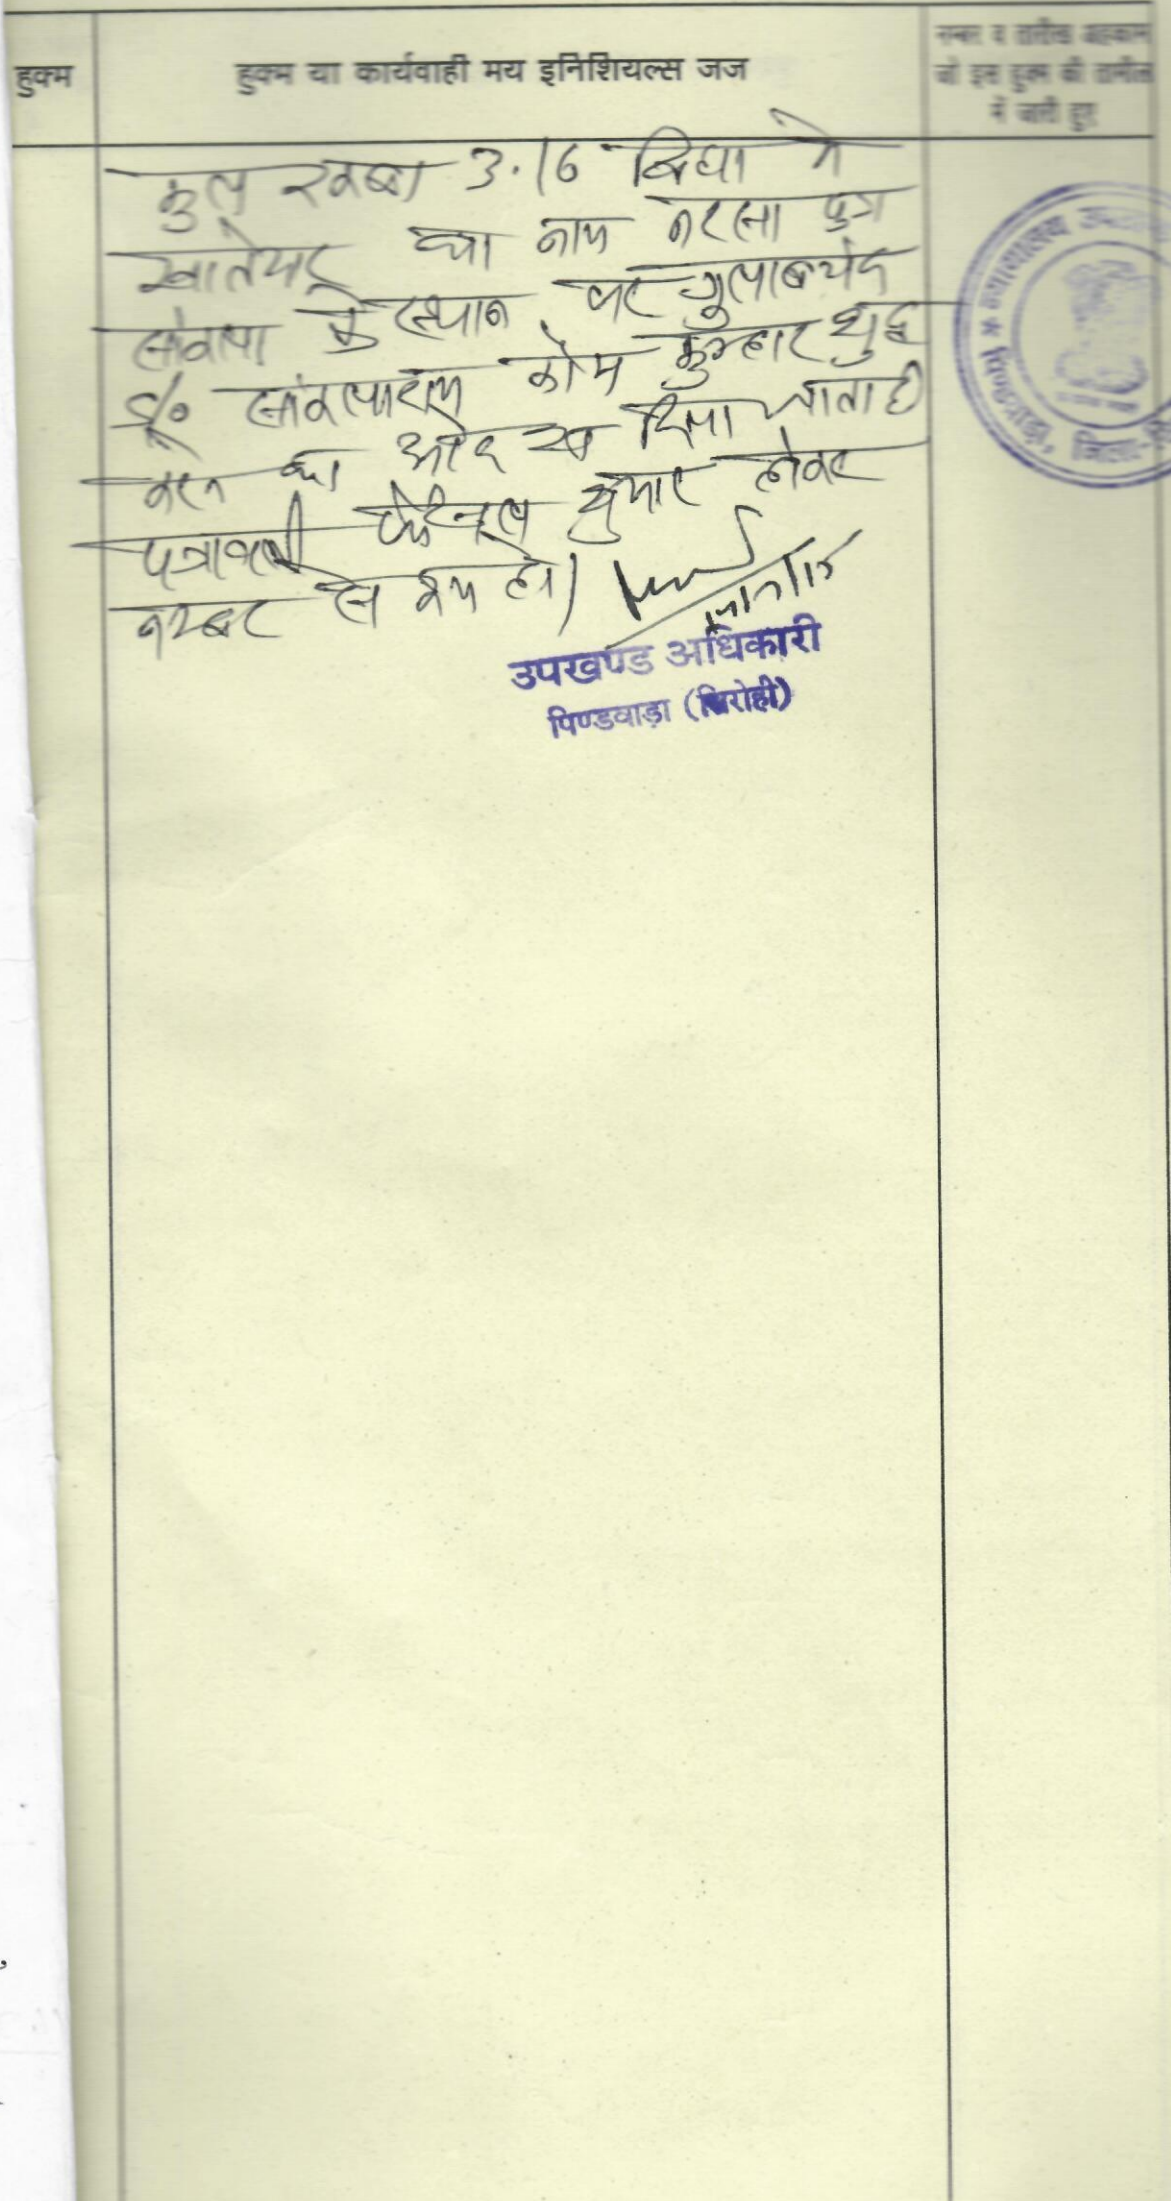 हुक्म
हुक्म या कार्यवाही मय इनिशियल्स जज
नम्बर व तारीख अहकाम
जो इस हुक्म की तामील
में जारी हुए
कुल रकबा 3.16 बिघा मे
खातेदार का नाम नरसा पुत्र
सांवला के स्थान पर गुलाबचंद
s/o सांवलाराम कोम कुम्हार शुद्ध
करने का आदेश दिया जाता है
पत्रावली फैसल शुमार होकर
नम्बर से कम हो।
उपखण्ड अधिकारी
पिण्डवाड़ा (सिरोही)
न्यायालय
पिण्डवाड़ा, जिला